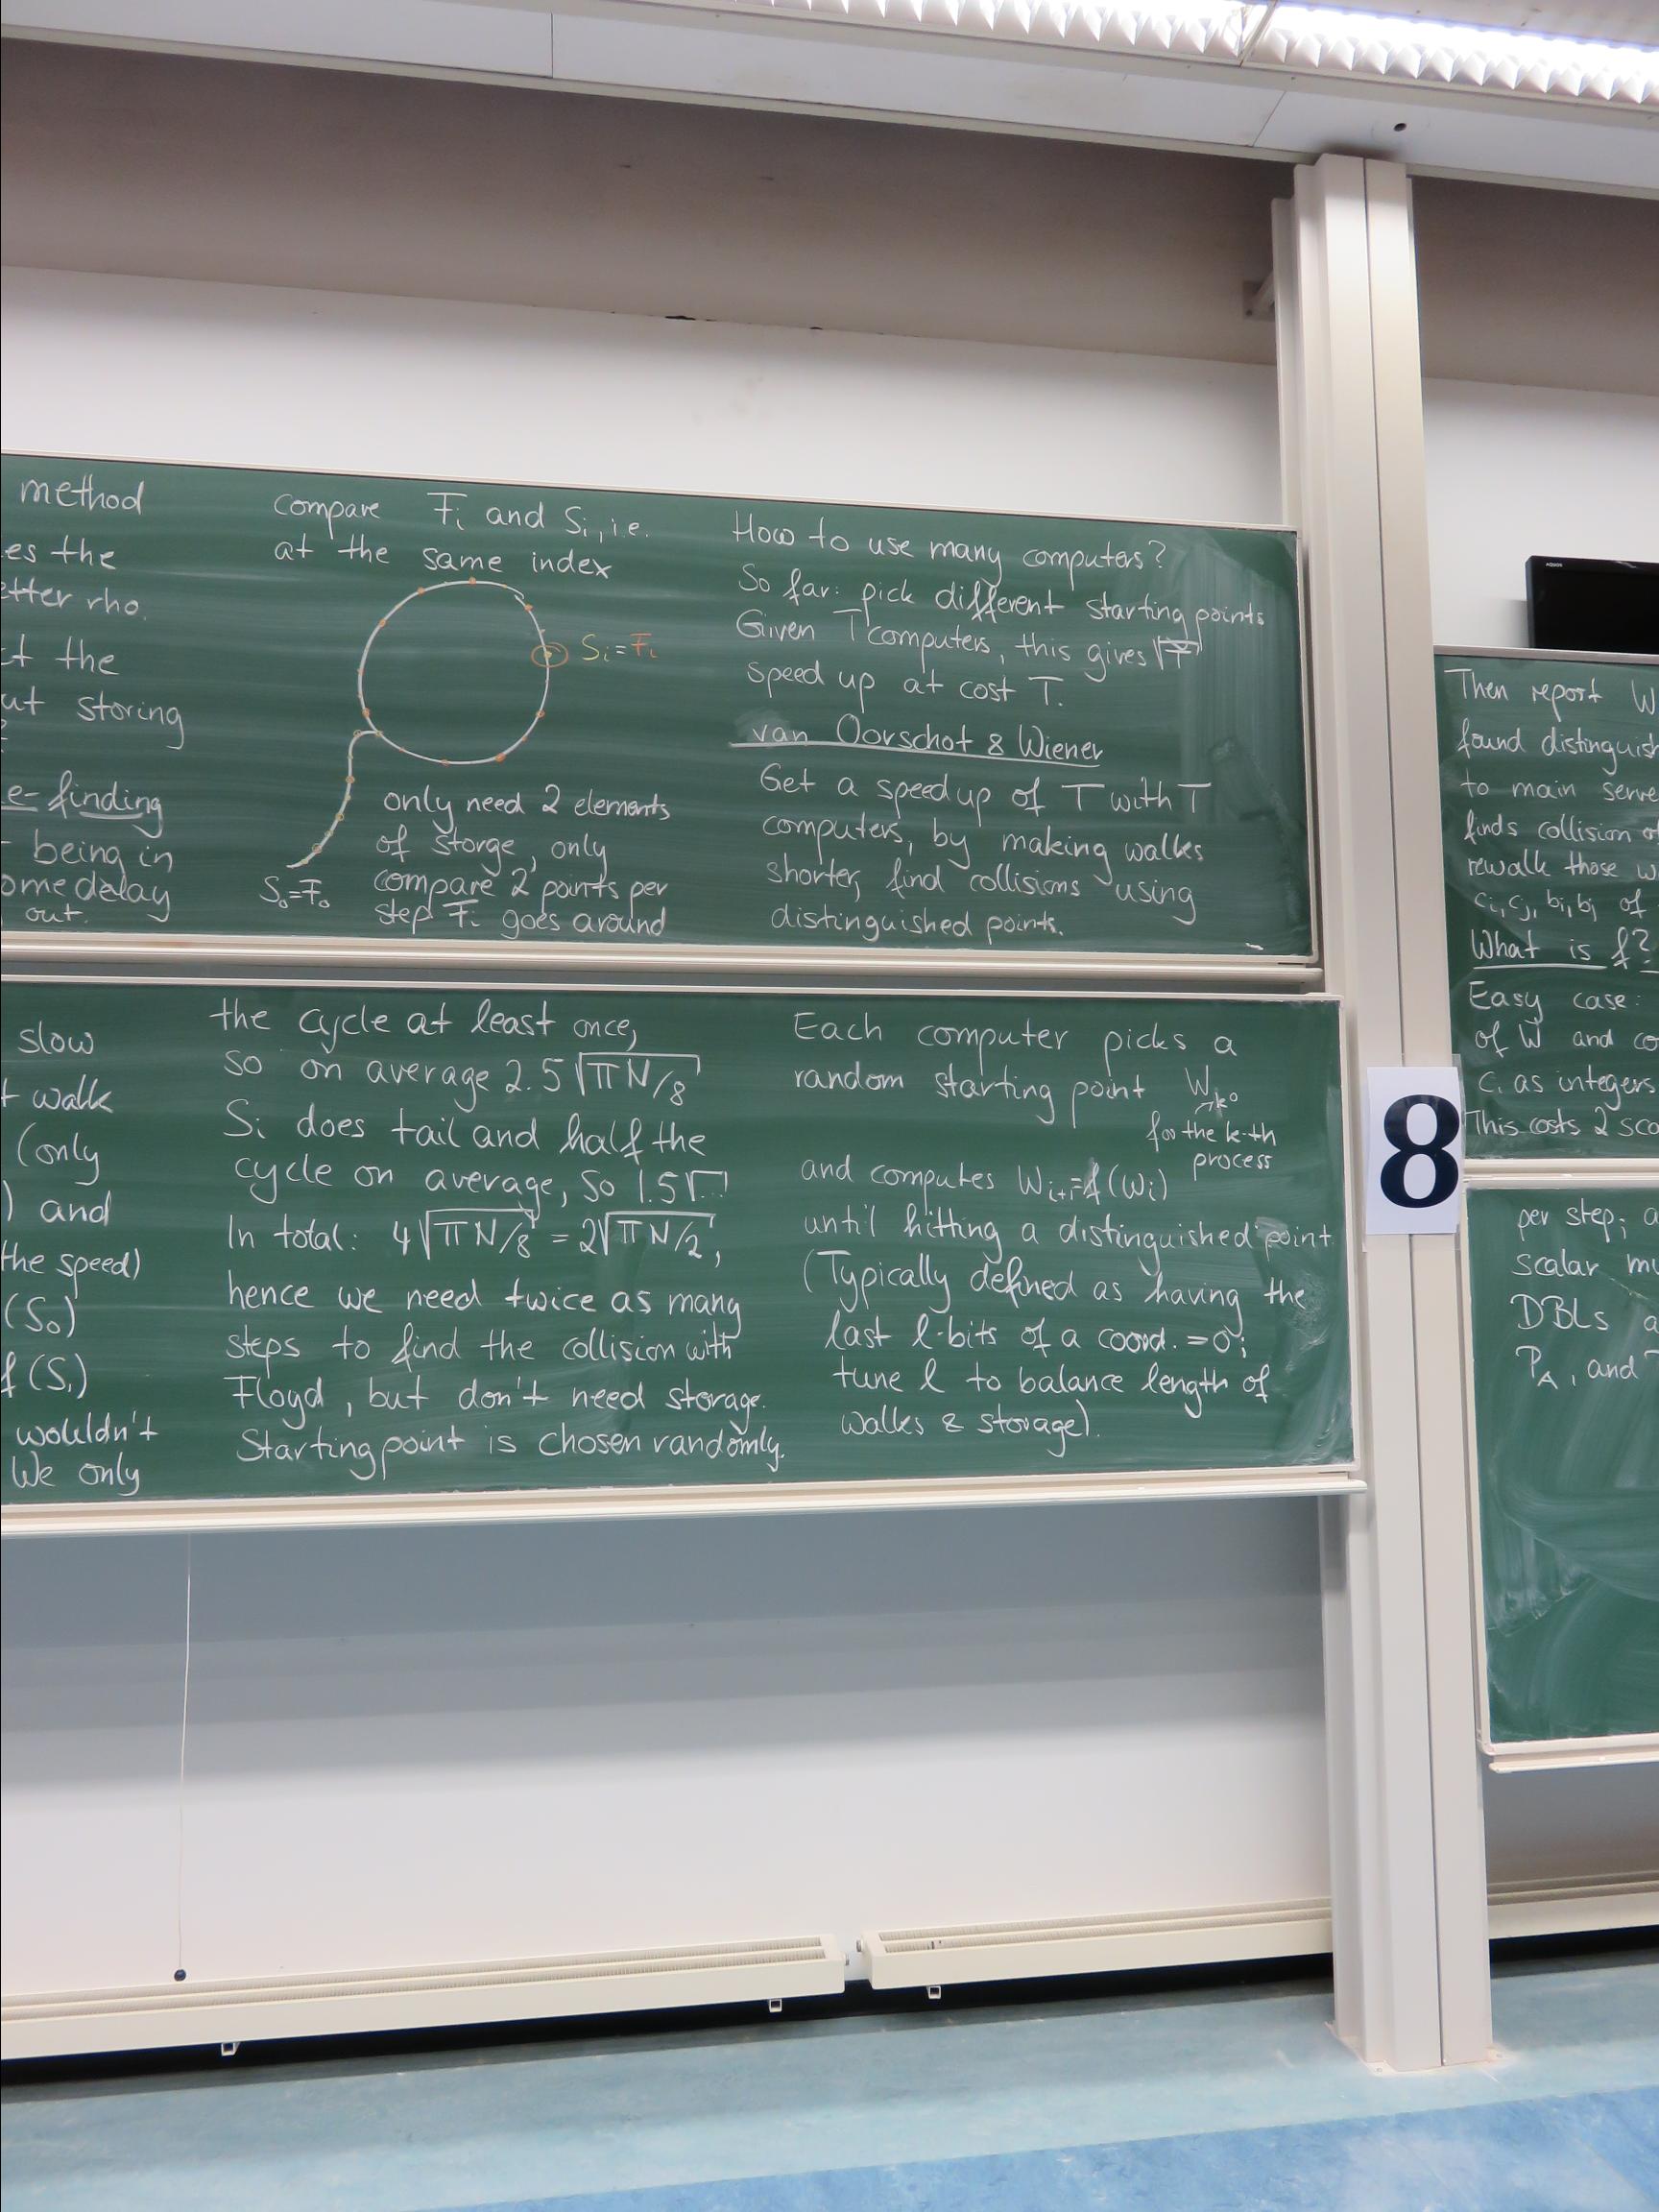 method
es the
etter rho.
ct the
ut storing
e-finding
being in
ome delay
out.
compare Fi and Si, i.e.
at the same index
Si=Fi
S0=F0
only need 2 elements
of storge, only
compare 2 points per
step Fi goes around
How to use many computers?
So far: pick different starting points
Given T computers, this gives √T
speed up at cost T.
van Oorschot & Wiener
Get a speedup of T with T
computers, by making walks
shorter, find collisions using
distinguished points.
slow
t walk
(only
) and
the speed)
(S0)
f(S1)
wouldn't
We only
the cycle at least once,
so on average 2.5 √πN/8
Si does tail and half the
cycle on average, so 1.5√...
In total: 4√πN/8 = 2√πN/2,
hence we need twice as many
steps to find the collision with
Floyd, but don't need storage.
Starting point is chosen randomly.
Each computer picks a
random starting point Wk0
for the k-th
process
and computes Wi+1=f(Wi)
until hitting a distinguished point
(Typically defined as having the
last l-bits of a coord. =0;
tune l to balance length of
walks & storage).
8
Then report W
found distinguish
to main serve
finds collision of
rewalk those w
ci, cj, bi, bj of
What is f?
Easy case:
of W and co
ci as integers
This costs 2 sca
per step; a
scalar mu
DBLs a
PA, and